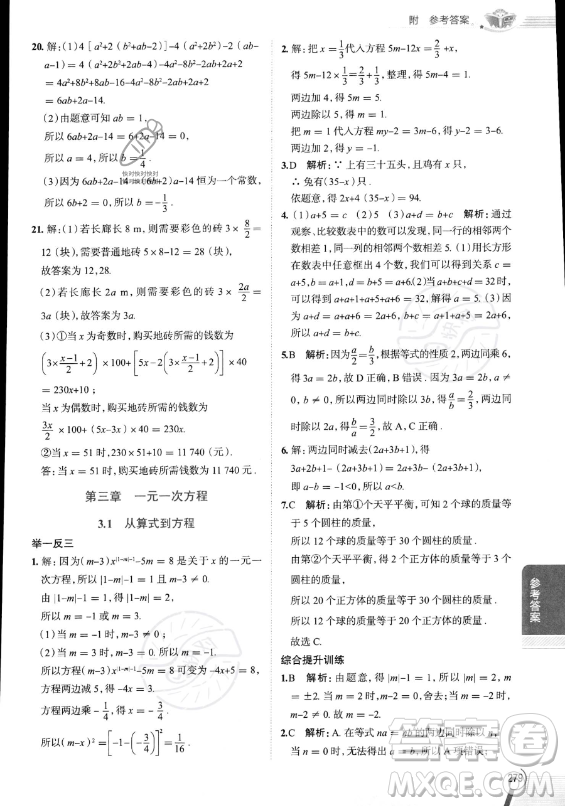 附 参考答案
20. 解：(1)4[a²+2(b²+ab-2)]-4(a²+2b²-ab
-a-1) = 4a²+8b²+8ab-16-4a²-8b²+4ab+4a+4=
6ab+2a-14.
(2)由题意可知 ab = 1,
所以 6ab+2a-14 = 6+2a-14 = 0,
所以 a = 4, 所以 b = 1/4.
(3)因为 6ab+2a-14 = a(6b+2)-14 恒为一个常数,
所以 6b+2 = 0, 所以 b = -1/3.
21. 解：(1)若长廊长 8 m, 则需要彩色的砖 3× 8/2 =
12 (块), 需要普通地砖 5×8-12 = 28 (块),
故答案为 12,28.
(2)若长廊长 2a m, 则需要彩色的砖 3× 2a/2 =
3a (块), 故答案为 3a.
(3)①当 x 为奇数时, 购买地砖所需的钱数为
(3× (x-1)/2 +2) ×100+[5x-(3× (x-1)/2 +2)]×40
= 230x+10;
当 x 为偶数时, 购买地砖所需的钱数为
3x/2 ×100+(5x-3x)×40 = 230x.
②当 x = 51 时, 230×51+10 = 11 740 (元).
答：当 x = 51 时, 购买地砖所需钱数为 11 740 元.
第三章 一元一次方程
3.1 从算式到方程
举一反三
1. 解：因为 (m-3)x^|1-m|-1-5m = 8 是关于 x 的一元一
次方程, 所以 |1-m|-1 = 1 且 m-3 ≠ 0,
所以 |1-m| = 2, m ≠ 3,
所以 1-m = ±2, 所以 m = 3 或 -1.
(1)当 m = 3 时, m-3 = 0 (舍去);
(2)当 m = -1 时, m-3 ≠ 0.
所以 m = -1.
所以原方程 (m-3)x^|1-m|-1-5m = 8 可变为 -4x+5 = 8,
方程两边减 5, 得 -4x = 3.
方程两边乘 -1/4, 得 x = -3/4.
所以 (m-x)² = [-1-(-3/4)]² = 1/16.
2. 解：把 x = 1/3 代入方程 5m-12x = 2/3 +x,
得 5m-12× 1/3 = 2/3 + 1/3, 整理, 得 5m-4 = 1.
两边加 4, 得 5m = 5.
两边除以 5, 得 m = 1.
把 m = 1 代入方程 my-2 = 3m-6y, 得 y-2 = 3-6y.
3.D 解析：∵ 上有三十五头, 且鸡有 x 只,
∴ 兔有 (35-x) 只.
依题意, 得 2x+4(35-x) = 94.
4. (1)a+5 = c (2)5 (3)a+d = b+c 解析：通过
观察、比较数表中的数可以发现, 同一行的相邻两个
数相差 1, 同一列的相邻两个数相差 5. (1)用长方形
在数表中任意框出 4 个数, 根据以上的规律可知 c =
a+5, b = a+1, d = a+6.(2)当 a+b+c+d = 32 时,
可以得到 a+a+1+a+5+a+6 = 32, 得 a = 5. (3)因为
a+d = a+a+6 = 2a+6, b+c = a+1+a+5 = 2a+6, 所
以 a+d = b+c.
5.B 解析：因为 a/2 = b/3, 根据等式的性质 2, 两边同乘 6,
得 3a = 2b, 故 D 正确, B 错误. 因为 3a = 2b, 所以两边
同时除以 2, 得 b = 3/2 a, 故 A 正确. 因为 a ≠ 0, 所以两边
同时除以 2a, 得 b/a = 3/2, 故 C 正确.
6. 解：两边同时减去 (2a+3b+1), 得
3a+2b+1-(2a+3b+1) = (2a+3b)-(2a+3b+1),
所以 a-b = -1<0, 所以 a<b.
7.C 解析：由第①个天平平衡, 可知 2 个正方体的质
量等于 3 个圆柱的质量,
所以 12 个正方体的质量等于 18 个圆柱的质量.
由第②个天平平衡, 可知 2 个球体的质量等于 5 个圆
柱的质量,
所以 12 个球体的质量等于 30 个圆柱的质量.
所以 20 个正方体的质量等于 30 个圆柱的质量,
所以 12 个球体的质量等于 20 个正方体的质量.
故选 C.
综合提升训练
1.B 解析：由题意, 得 |m|-1 = 1, 即 |m| = 2, 解得 m =
±2. 而 m = 2 时, m-2 = 0, 故舍去, 所以 m = -2.
2.C 解析：A. 在等式 na = nb 的两边同时除以 n,
当 n = 0 时, 无法得到 a = b, 所以 A 项错误;
参考答案
279